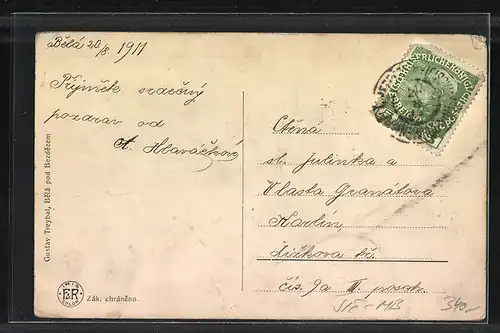 Bělá 20/8. 1911
Přijměte srdečný
pozdrav od
A. Hlaváčkové
Gustav Treybal, Bělá pod Bezdězem
Zák. chráněno.
Ctěná
sl. Julinka a
Vlasta Granátova
Karlín
Žižkova tř.
čís. 9a III posch.
SIE-MB
340.-